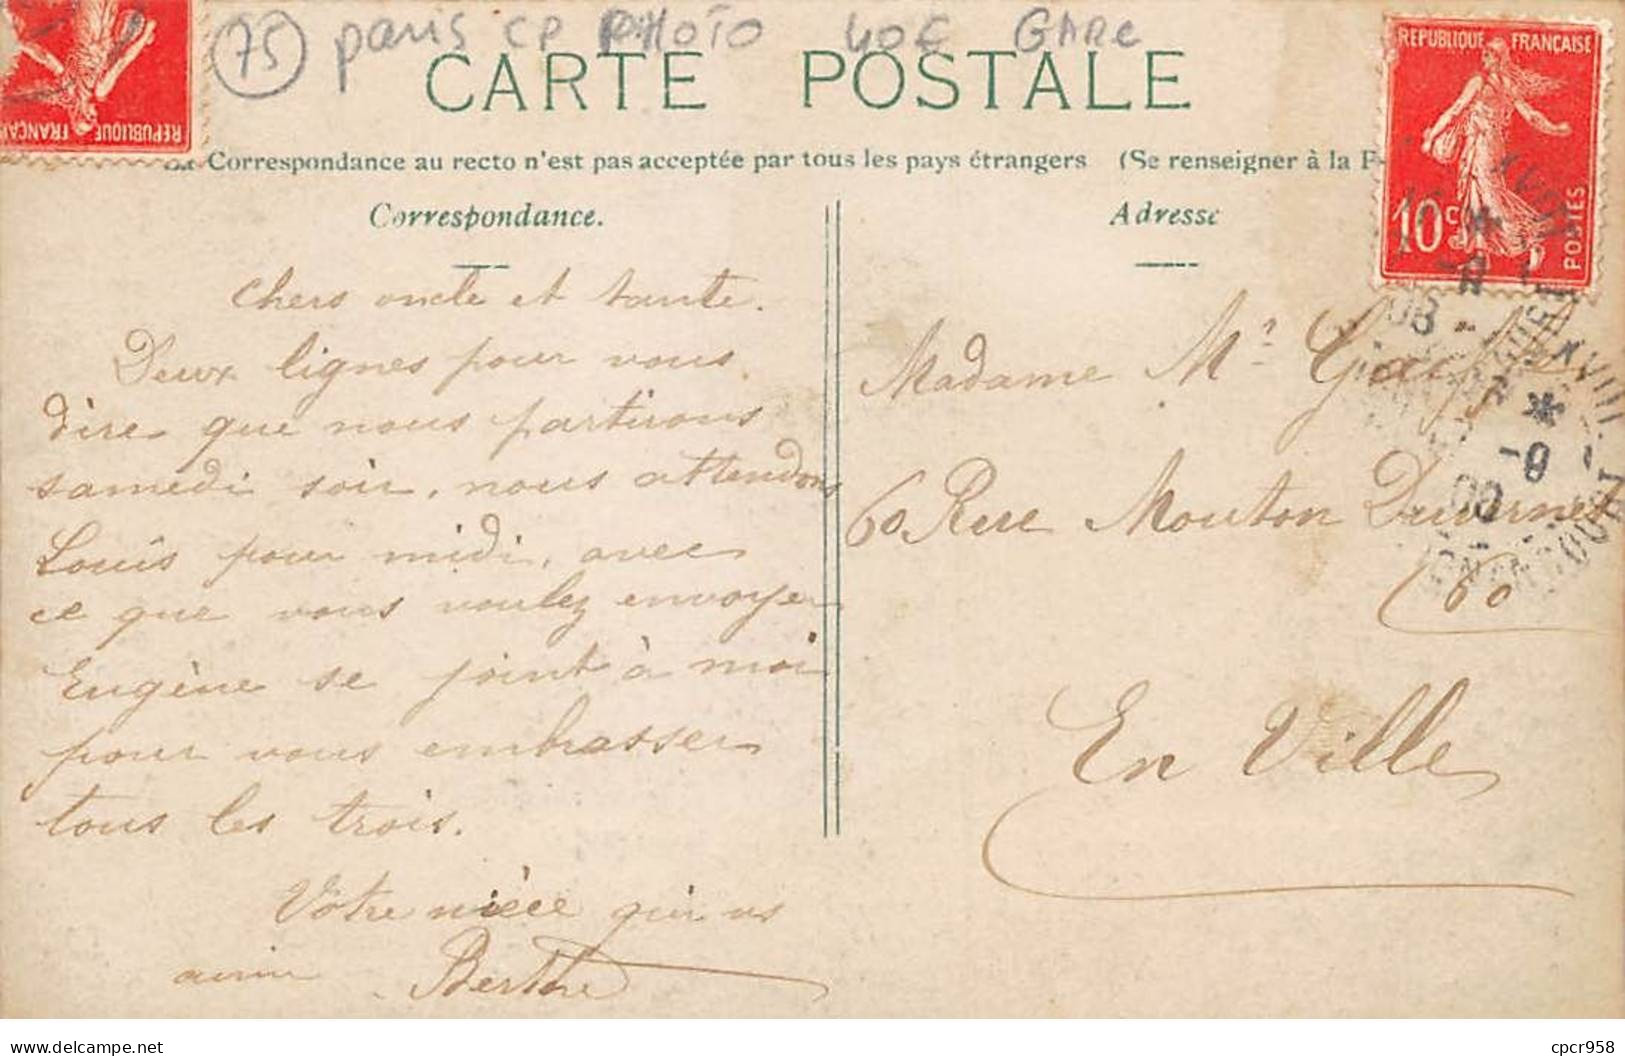 75 paris CP PHOTO 40€ GARE
CARTE POSTALE
La Correspondance au recto n'est pas acceptée par tous les pays étrangers (Se renseigner à la P
Correspondance.
Chers oncle et tante.
Deux lignes pour vous
dire que nous partirons
samedi soir, nous attendons
Louis pour midi, avec
ce que vous voulez envoyer
Eugène se joint à moi
pour vous embrasser
tous les trois.
Votre nièce qui vs
aime Berthe
Adresse
Madame Mr
60 Rue Mouton Duvernet
60
En Ville
REPUBLIQUE FRANÇAISE
10c POSTES
REPUBLIQUE FRANÇAI
XVIII
delcampe.net
cpcr958